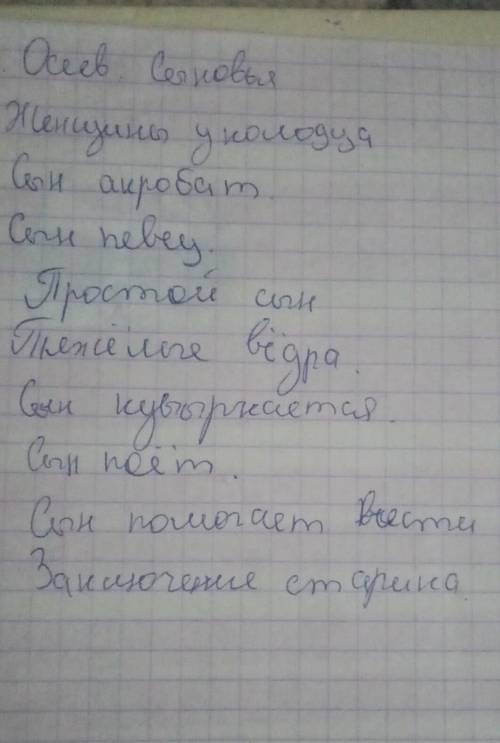 . Осеев. Сыновья
Женщины у колодца
Сын акробат.
Сын певец.
Простой сын
Тяжёлые вёдра.
Сын кувыркается.
Сын поёт.
Сын помогает нести
Заключение старика.